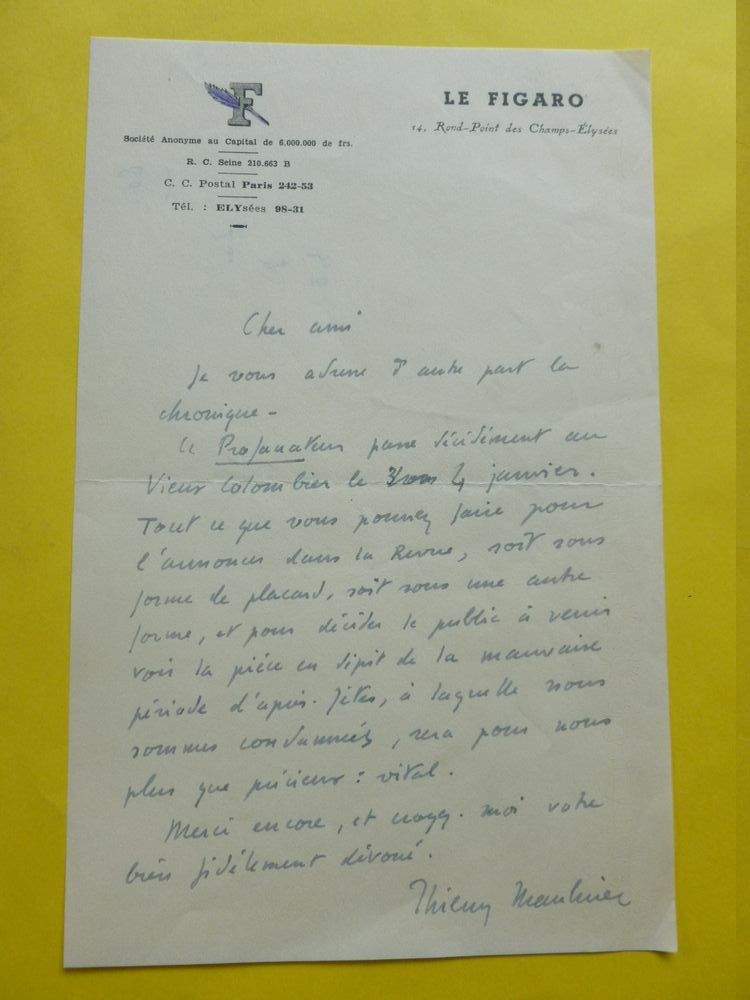 F
Société Anonyme au Capital de 6.000.000 de frs.
R. C. Seine 210.663 B
C. C. Postal Paris 242-53
Tél. : ELYsées 98-31
LE FIGARO
14, Rond-Point des Champs-Élysées
Cher ami
Je vous adresse d'autre part la
chronique -
Le Profanateur passe décidément au
Vieux Colombier le 3 ou 4 janvier.
Tout ce que vous pourrez faire pour
l'annoncer dans la Revue, soit sous
forme de placard, soit sous une autre
forme, et pour décider le public à venir
voir la pièce en dépit de la mauvaise
période d'après-fêtes, à laquelle nous
sommes condamnés, sera pour nous
plus que précieux : vital.
Merci encore, et croyez-moi votre
bien fidèlement dévoué.
Thierry Maulnier